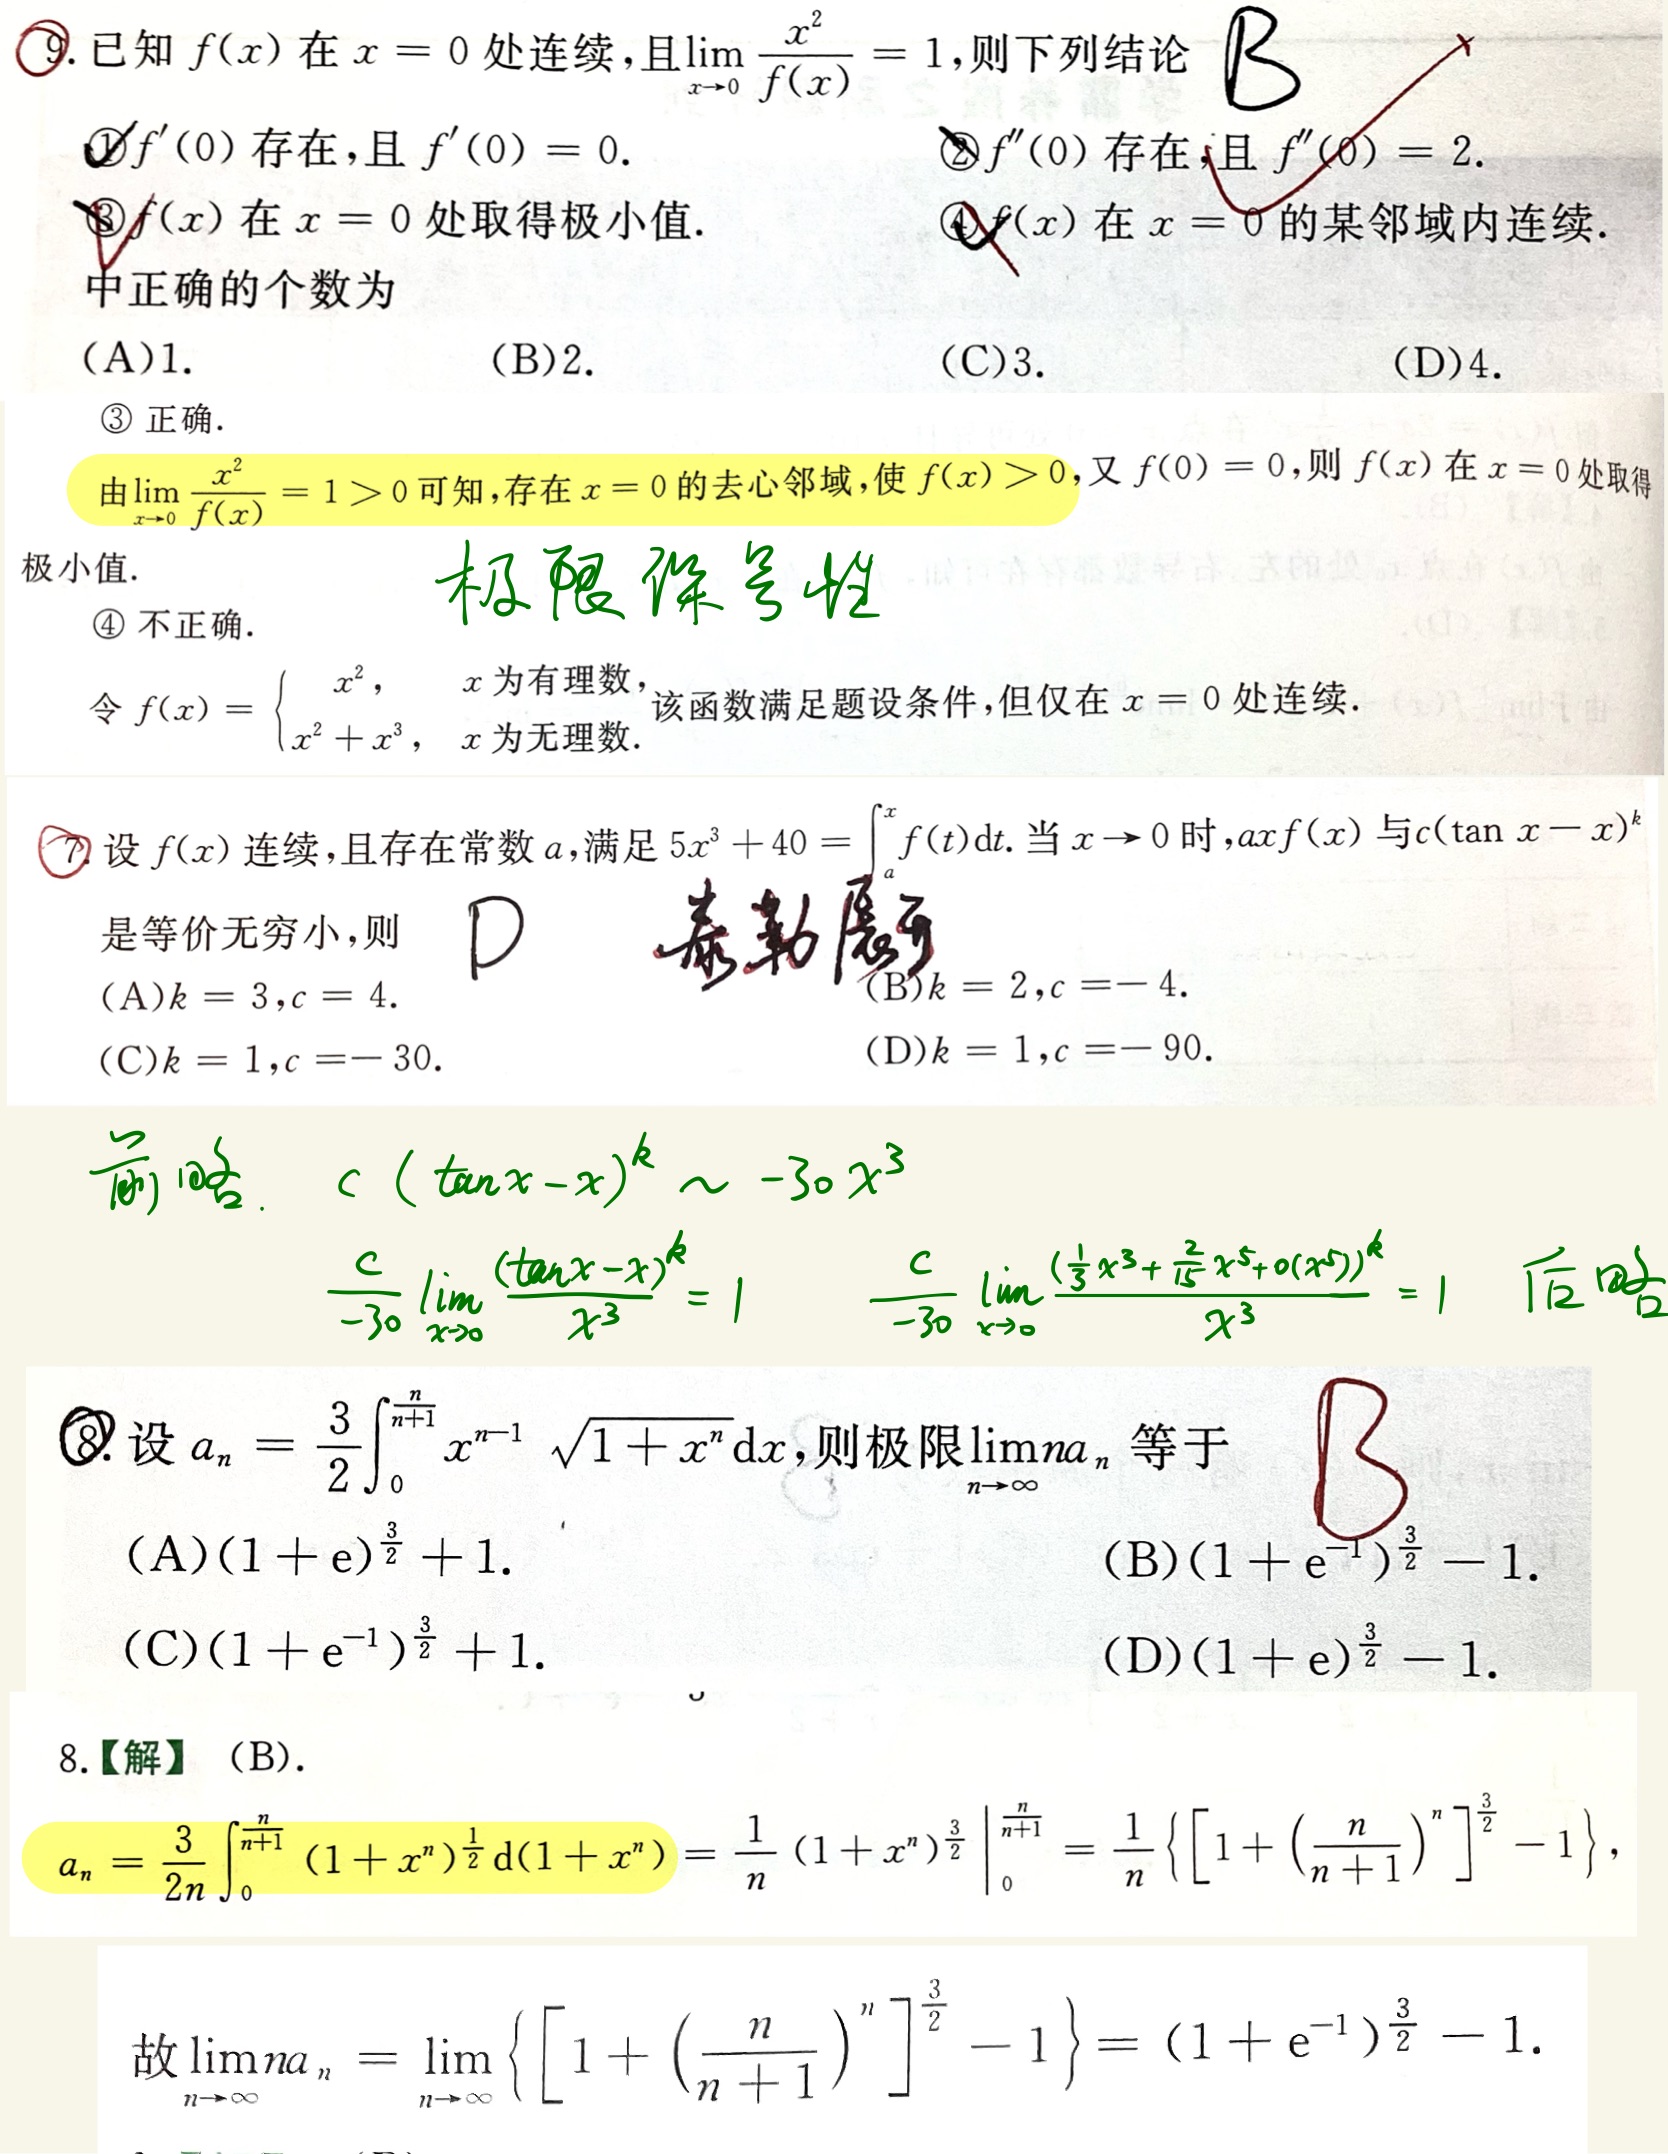 9. 已知 f(x) 在 x = 0 处连续,且lim_{x→0} x²/f(x) = 1,则下列结论 B
① f′(0) 存在,且 f′(0) = 0. ② f″(0) 存在,且 f″(0) = 2.
③ f(x) 在 x = 0 处取得极小值. ④ f(x) 在 x = 0 的某邻域内连续.
中正确的个数为
(A)1. (B)2. (C)3. (D)4.
③ 正确.
由lim_{x→0} x²/f(x) = 1 > 0 可知,存在 x = 0 的去心邻域,使 f(x) > 0,又 f(0) = 0,则 f(x) 在 x = 0 处取得
极小值.
极限保号性
④ 不正确.
令 f(x) = { x², x 为有理数, x² + x³, x 为无理数. 该函数满足题设条件,但仅在 x = 0 处连续.
7. 设 f(x) 连续,且存在常数 a,满足 5x³ + 40 = ∫_a^x f(t)dt. 当 x → 0 时,axf(x) 与c(tan x − x)^k
是等价无穷小,则 D 泰勒展开
(A)k = 3,c = 4. (B)k = 2,c =− 4.
(C)k = 1,c =− 30. (D)k = 1,c =− 90.
前略. c (tanx−x)^k ~ −30x³
c/−30 lim_{x→0} (tanx−x)^k/x³ = 1 c/−30 lim_{x→0} (1/3 x³ + 2/15 x⁵+o(x⁵))^k/x³ = 1 后略
8. 设 a_n = 3/2 ∫_0^{n/(n+1)} x^{n−1} √(1 + xⁿ) dx,则极限lim_{n→∞} na_n 等于 B
(A)(1 + e)^{3/2} + 1. (B)(1 + e^{−1})^{3/2} − 1.
(C)(1 + e^{−1})^{3/2} + 1. (D)(1 + e)^{3/2} − 1.
8.【解】 (B).
a_n = 3/2n ∫_0^{n/(n+1)} (1 + xⁿ)^{1/2} d(1 + xⁿ) = 1/n (1 + xⁿ)^{3/2} |_0^{n/(n+1)} = 1/n {[1 + (n/(n+1))ⁿ]^{3/2} − 1},
故 lim_{n→∞} na_n = lim_{n→∞} {[1 + (n/(n+1))ⁿ]^{3/2} − 1} = (1 + e^{−1})^{3/2} − 1.